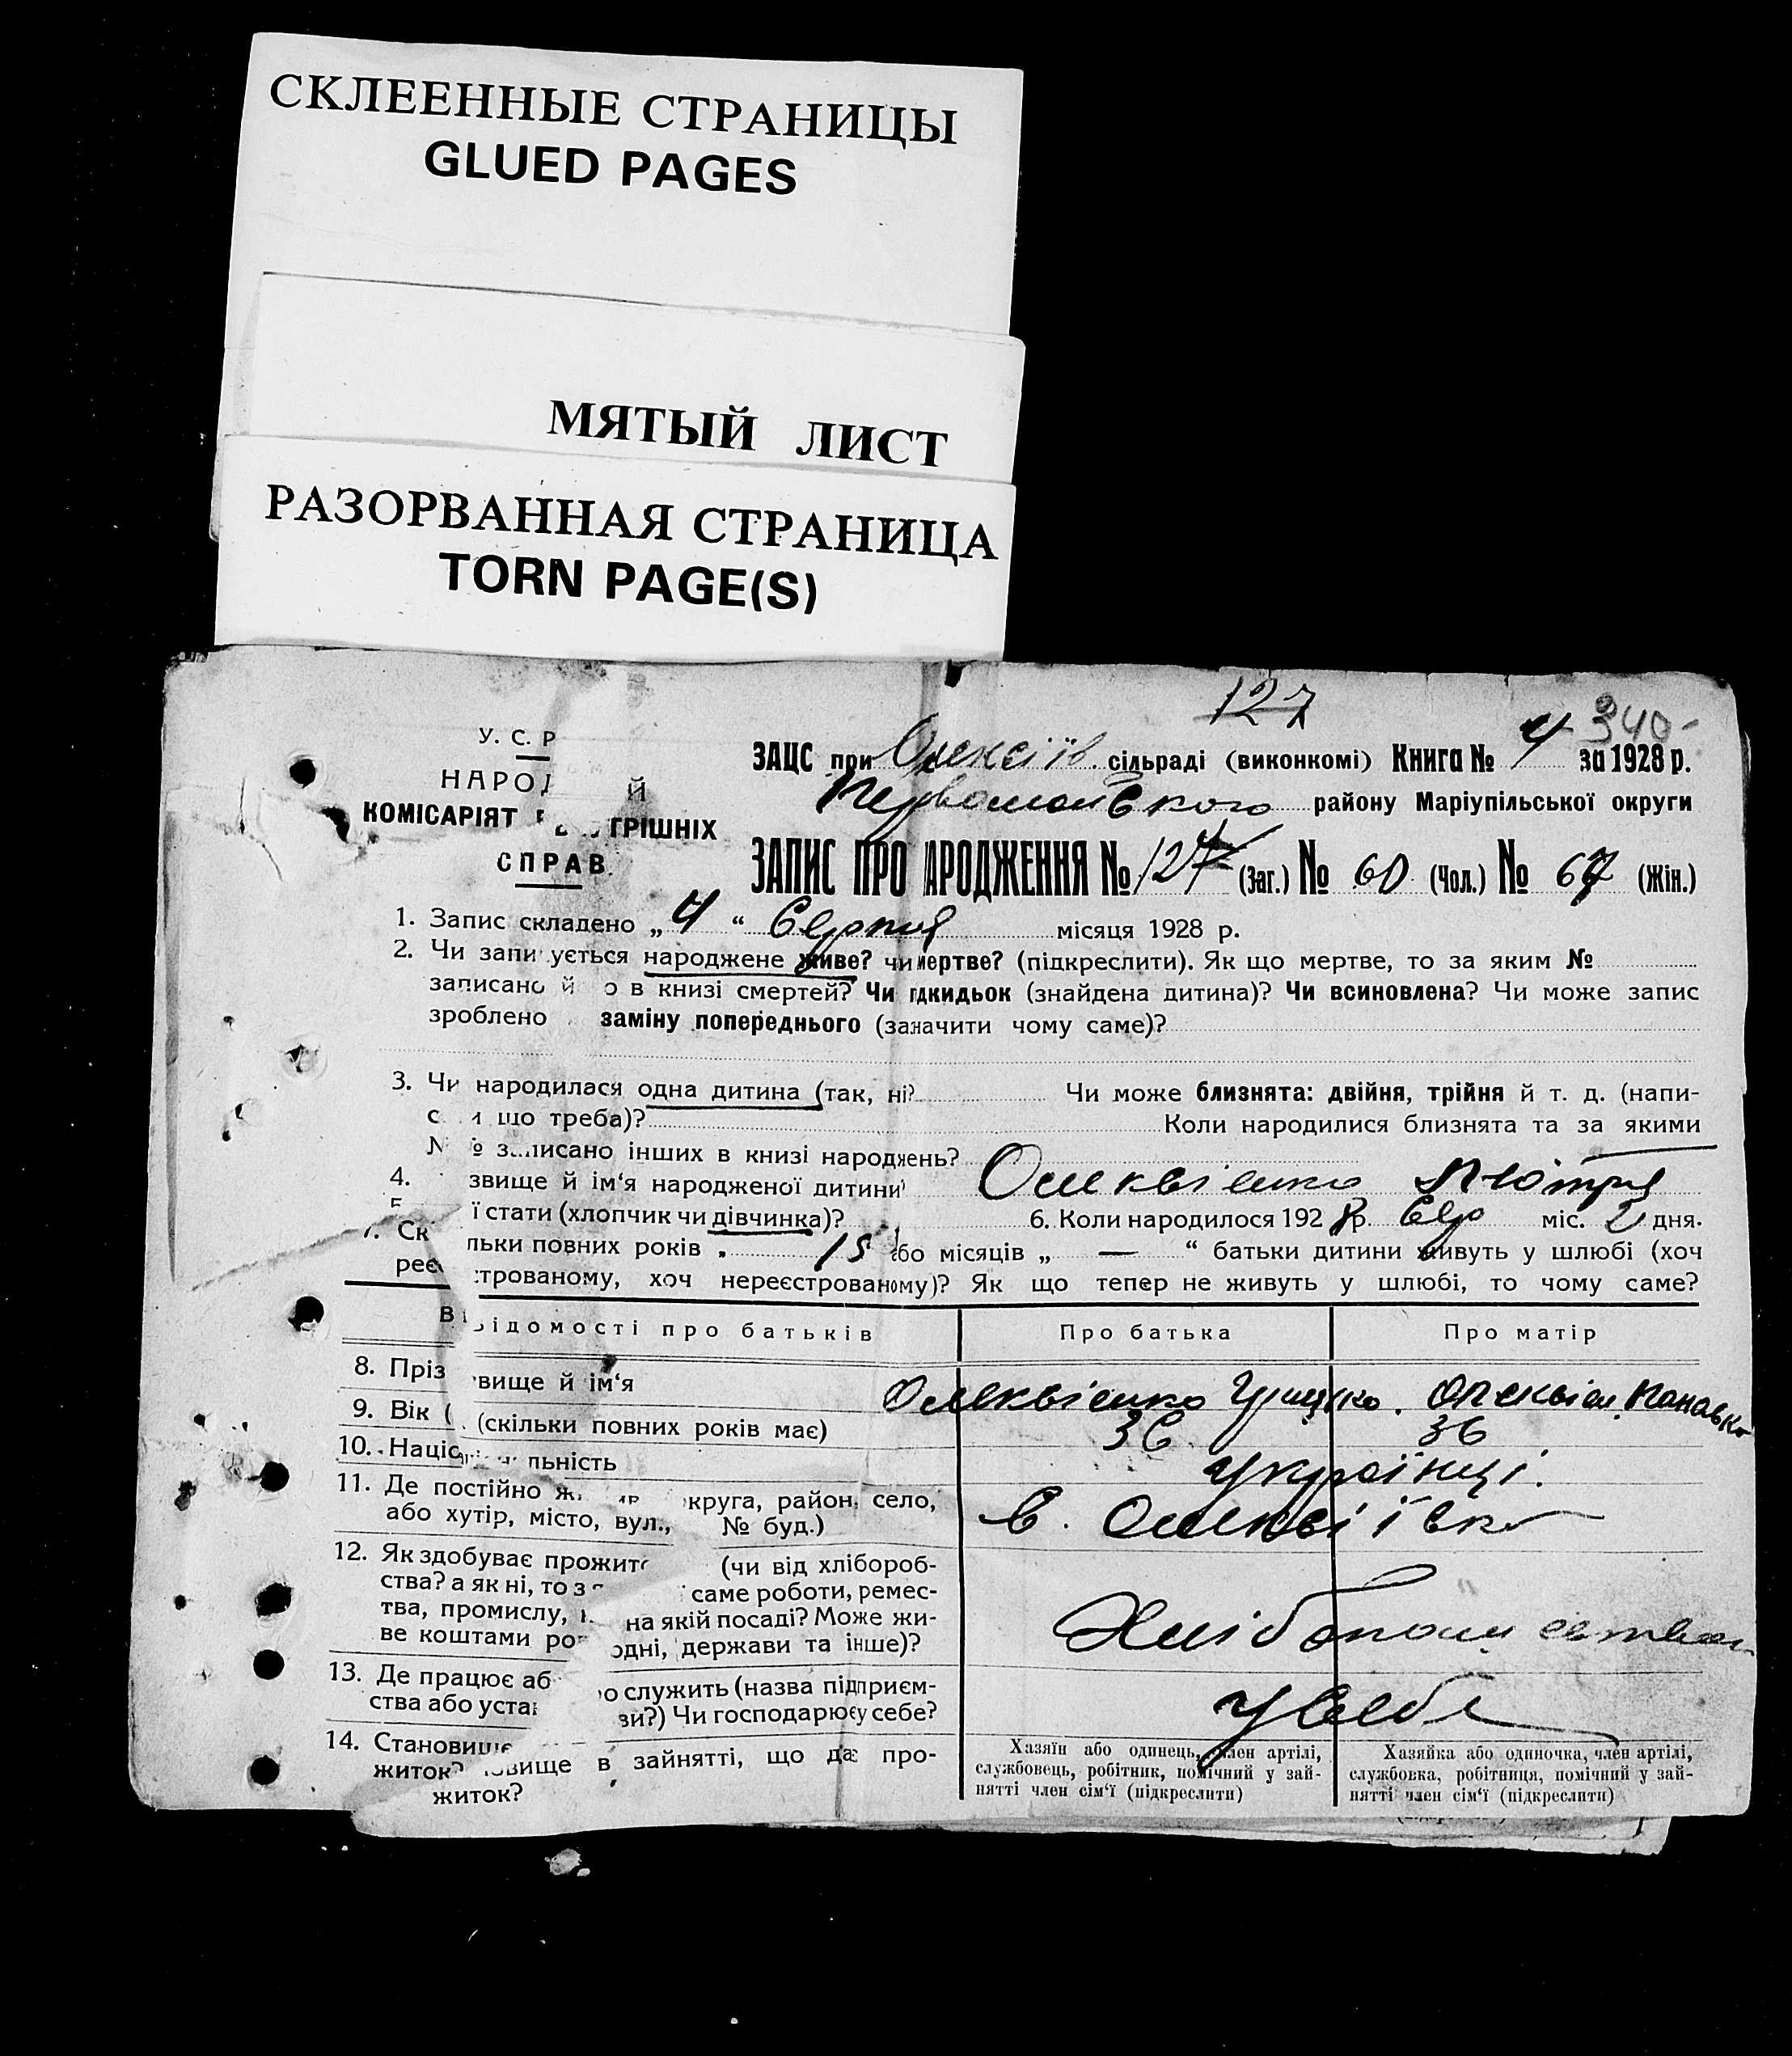 СКЛЕЕННЫЕ СТРАНИЦЫ
GLUED PAGES
МЯТЫЙ ЛИСТ
РАЗОРВАННАЯ СТРАНИЦА
TORN PAGE(S)
127
340
У. С. Р
НАРОД Й
КОМІСАРІЯТ ГРІШНІХ
СПРАВ.
ЗАЦС при Олексіїв. сільраді (виконкомі) Книга № 4 за 1928 р.
Першомайського району Маріупільської округи
ЗАПИС ПРО АРОДЖЕННЯ № 127 (Заг.) № 60 (Чол.) № 67 (Жін.)
1. Запис складено „ 4 “ Серпня місяця 1928 р.
2. Чи запи ується народжене живе? чи мертве? (підкреслити). Як що мертве, то за яким №
записано й о в книзі смертей? Чи підкидьок (знайдена дитина)? Чи всиновлена? Чи може запис
зроблено заміну попереднього (зазначити чому саме)?
3. Чи народилася одна дитина (так, ні? Чи може близнята: двійня, трійня й т. д. (напи-
с и що треба)? Коли народилися близнята та за якими
№ записано інших в книзі народжень?
4. звище й ім'я народженої дитини
5 ї стати (хлопчик чи дівчинка)? 6. Коли народилося 1928 р. Сер міс. 2 дня.
7. Ск льки повних років „ 15 або місяців „ — “ батьки дитини живуть у шлюбі (хоч
реє строваному, хоч нереєстрованому)? Як що тепер не живуть у шлюбі, то чому саме?
Відомості про батьків Про батька Про матір
8. Пріз вище й ім'я
9. Вік (скільки повних років має) 36 36
10. Націо льність Українці.
11. Де постійно жи круга, район, село,
або хутір, місто, вул., № буд.) с. Олексіївка
12. Як здобуває прожито (чи від хлібороб-
ства? а як ні, то з саме роботи, ремес-
тва, промислу, на якій посаді? Може жи-
ве коштами ро одні, держави та інше)?
13. Де працює аб о служить (назва підприєм-
ства або уста ви?) Чи господарює у себе? У себе
14. Становище вище в зайнятті, що дає про-
житок?
житок?
Хазяїн або одинець, член артілі,
службовець, робітник, помічний у зай-
нятті член сім'ї (підкреслити)
Хазяйка або одиночка, член артілі,
службовка, робітниця, помічний у зай-
нятті член сім'ї (підкреслити)